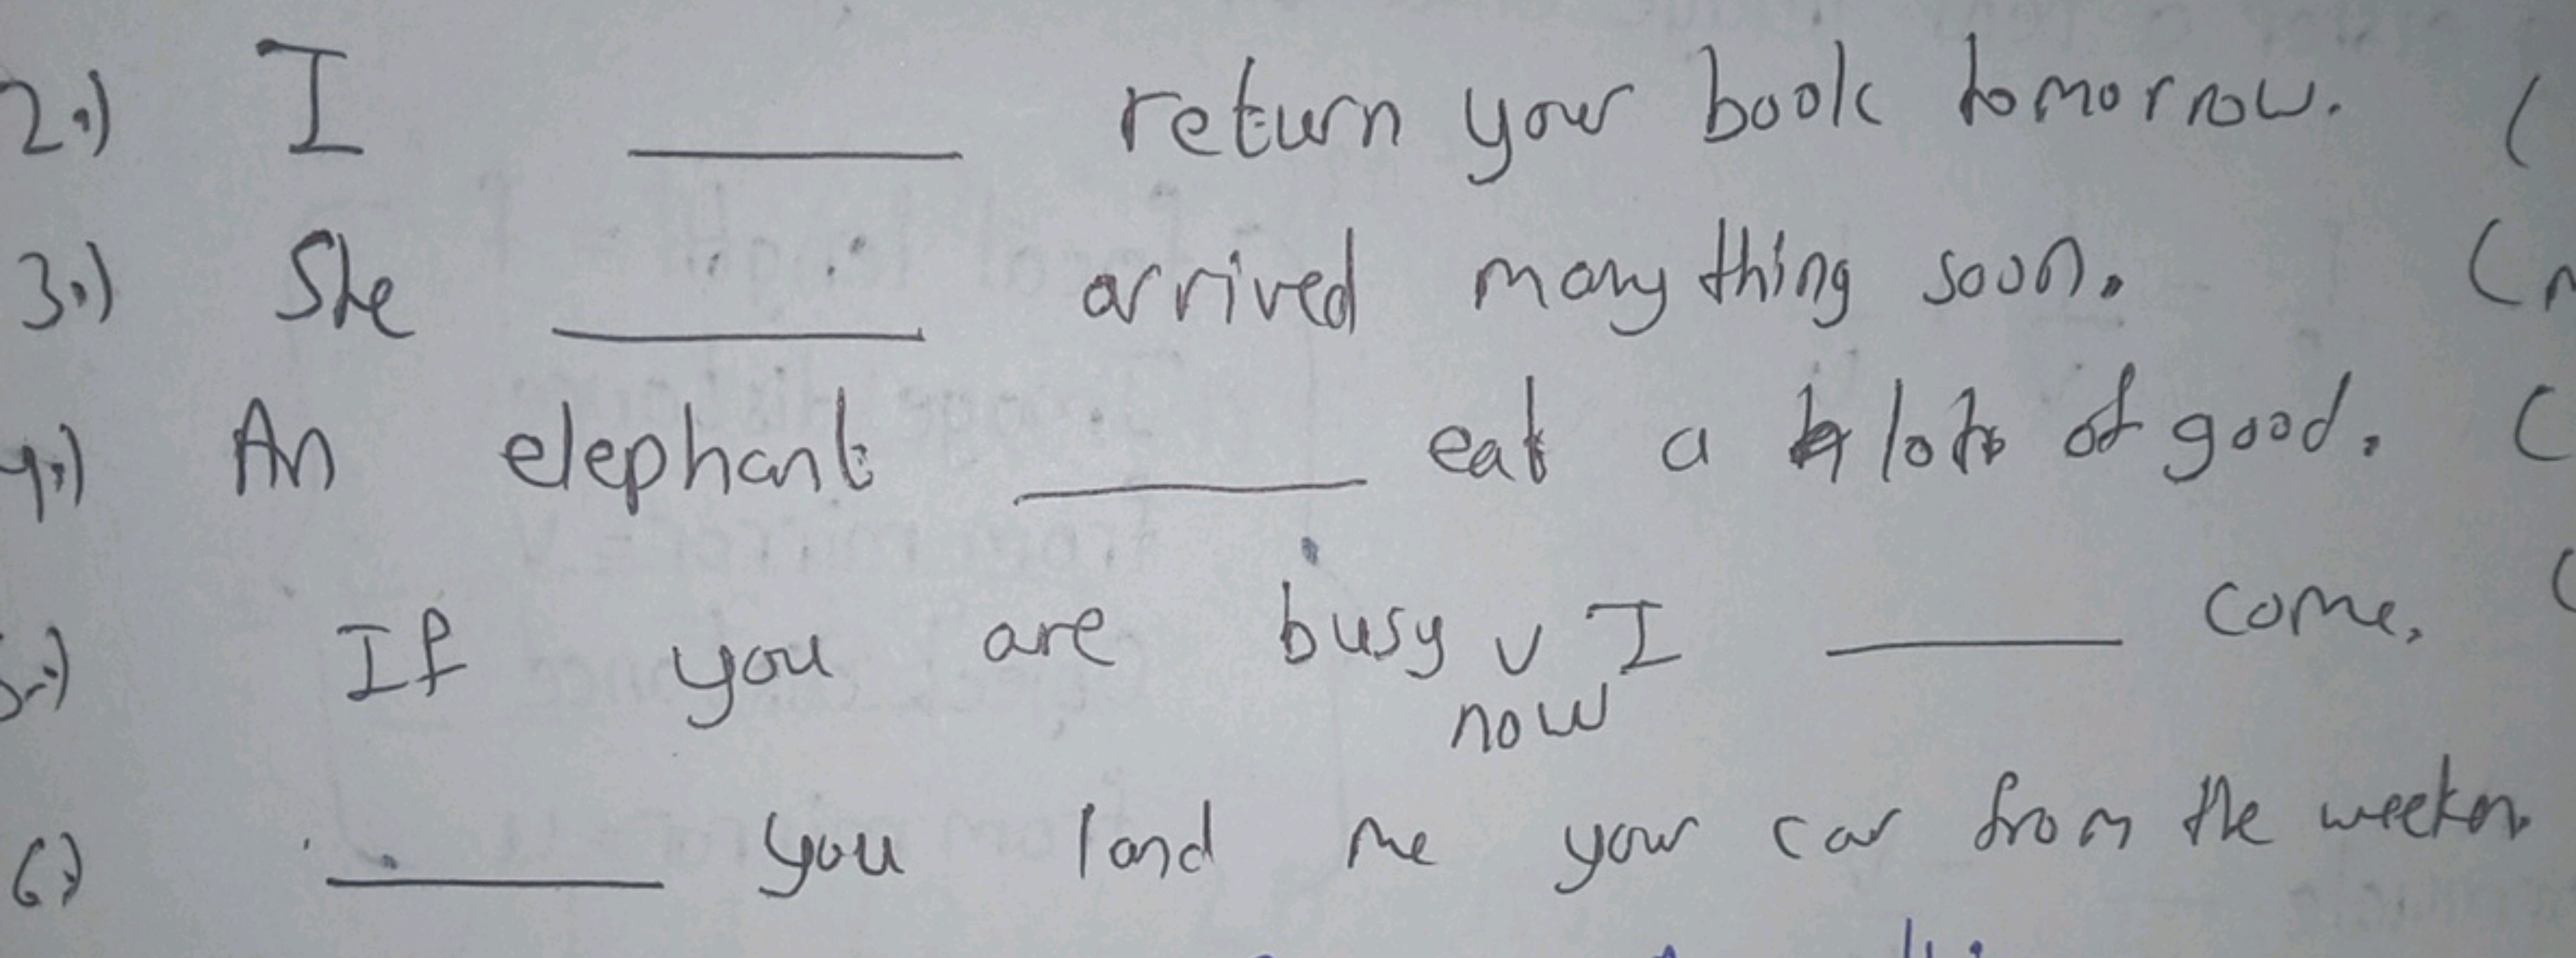 2.) I ______ return your book tomorrow. (
3.) She ______ arrived many thing soon. (
4.) An elephant ______ eat a lots of good. (
5.) If you are busy now I ______ come. (
6.) ______ you land me your car from the